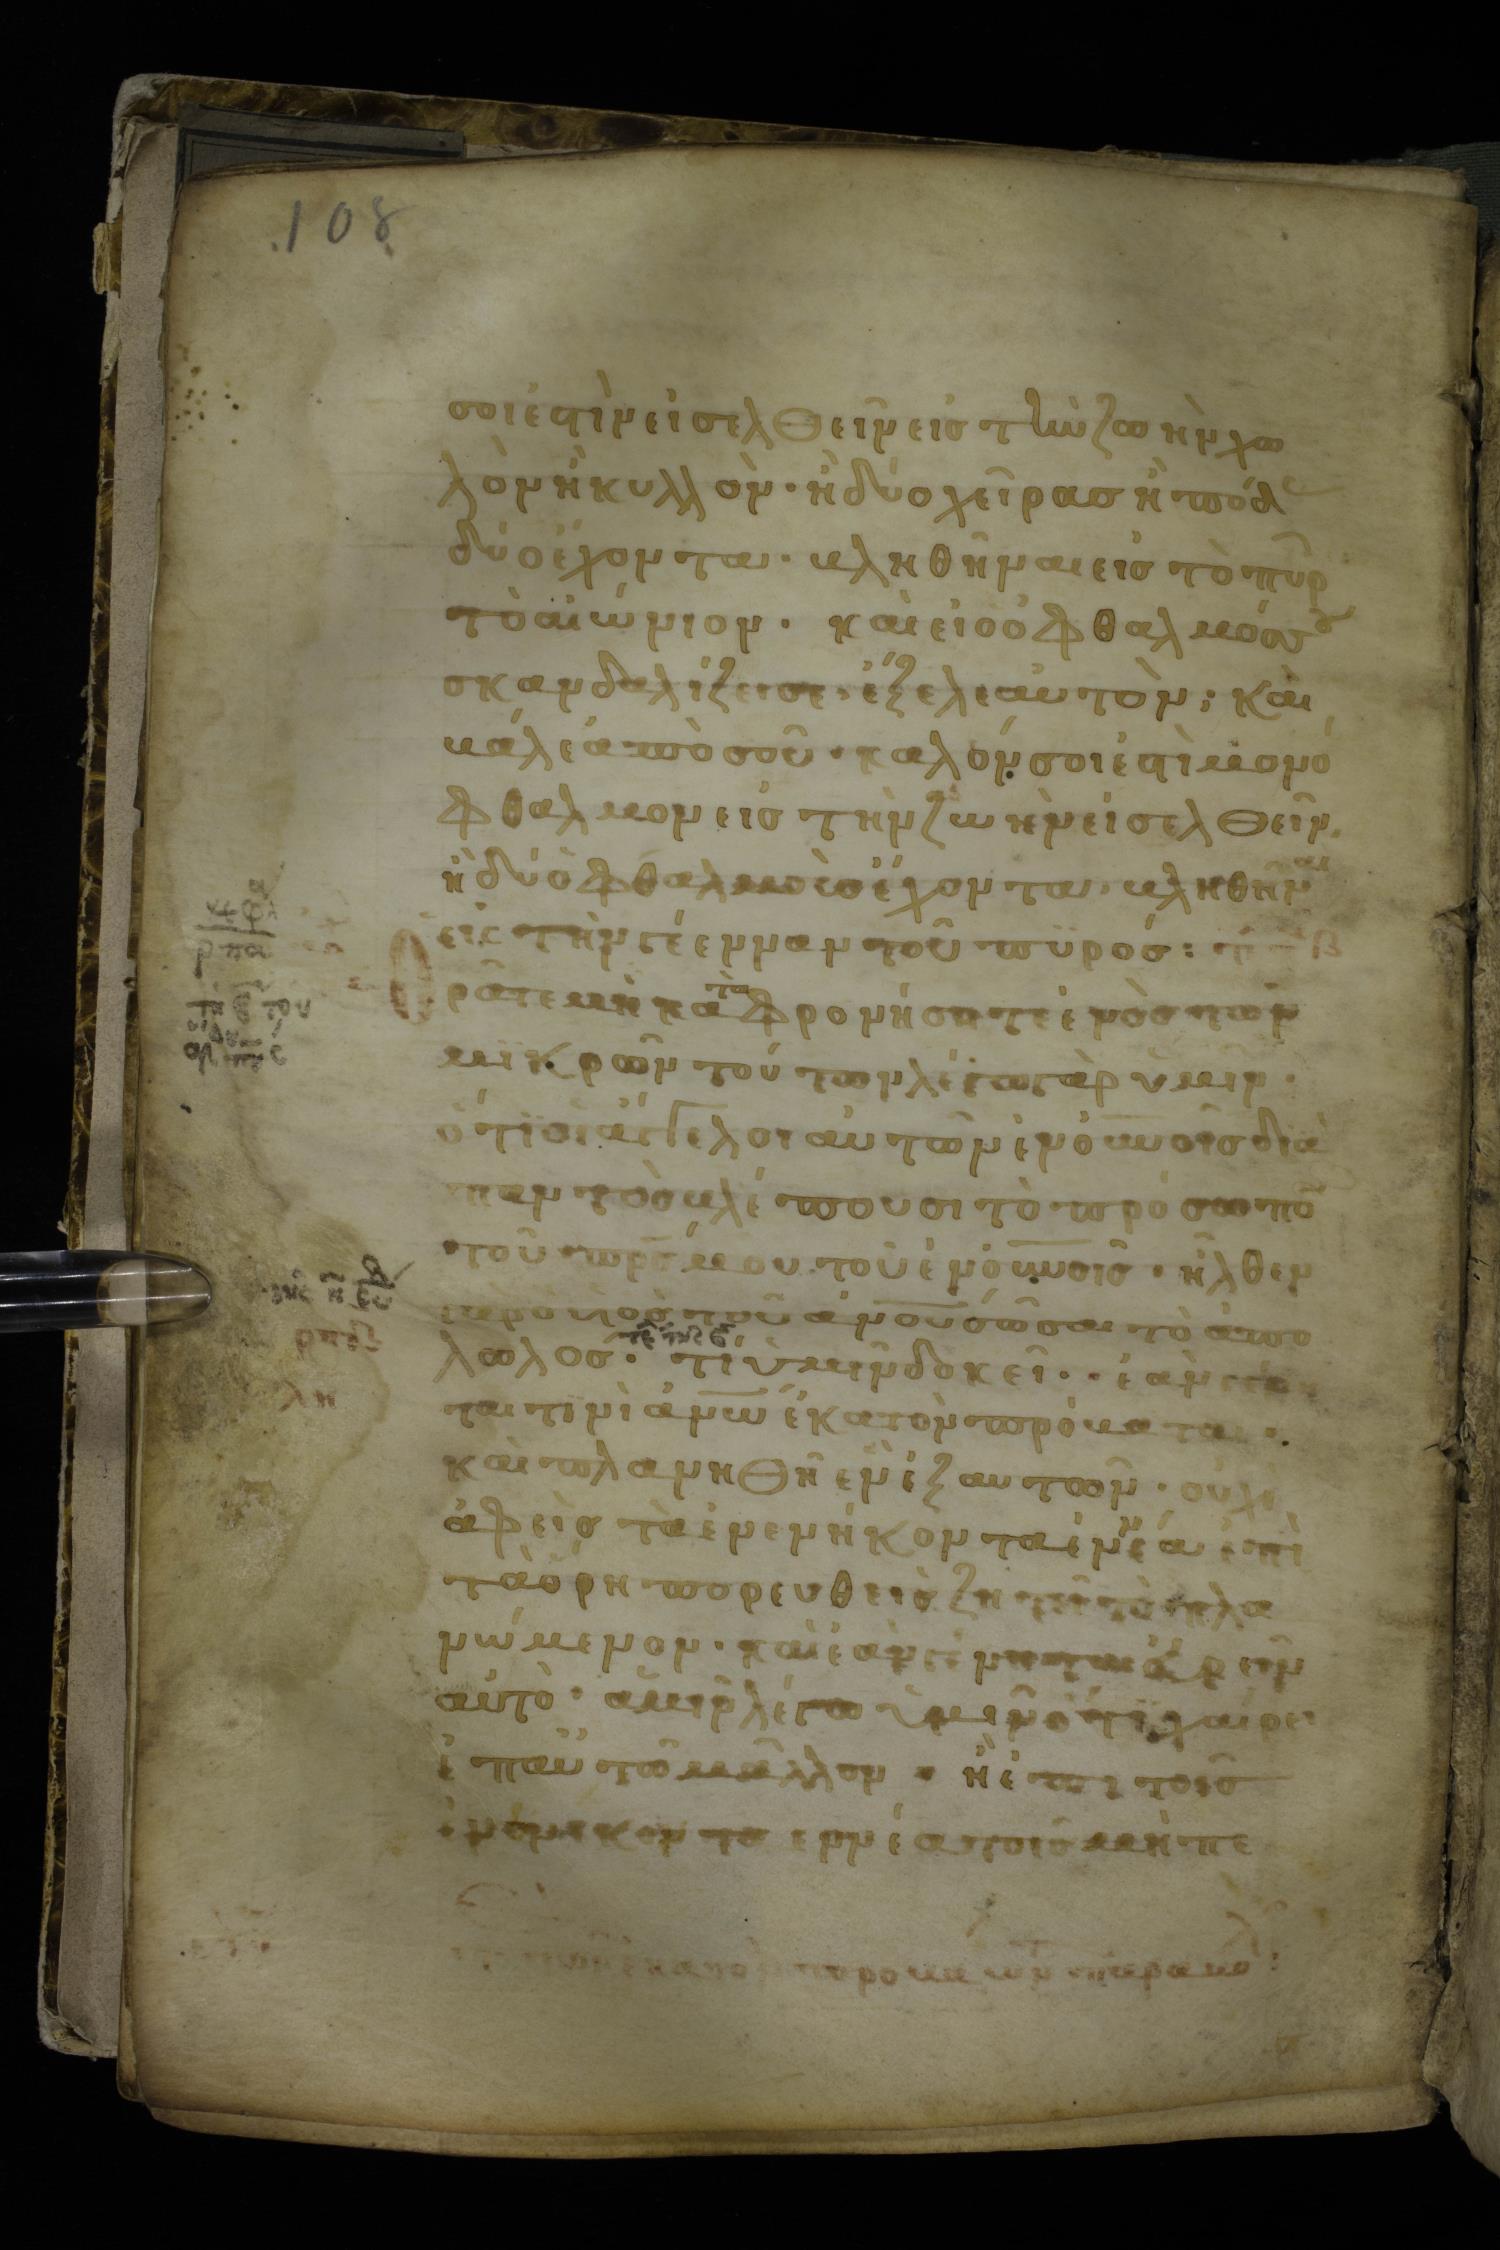 108
σοι ἐστὶν εἰσελθεῖν εἰς τὴν ζωὴν χω
λὸν ἢ κυλλὸν · ἢ δύο χεῖρας ἢ πόδ
δύο ἔχοντα · βληθῆναι εἰς τὸ πῦρ
τὸ αἰώνιον · καὶ εἰ ὁ ὀφθαλμός σου
σκανδαλίζει σε · ἔξελε αὐτὸν ; καὶ
βάλε ἀπὸ σοῦ · καλόν σοι ἐστὶ μονό
φθαλμον εἰς τὴν ζωὴν εἰσελθεῖν,
ἢ δύο ὀφθαλμοὺς ἔχοντα · βληθῆναι
εἰς τὴν γέενναν τοῦ πυρός :
Ὁρᾶτε μὴ καταφρονήσητε ἑνὸς τῶν
μικρῶν τούτων λέγω γὰρ ὑμῖν ·
ὅτι οἱ ἄγγελοι αὐτῶν ἐν οὐνοῖς διὰ
παντὸς βλέπουσι τὸ πρόσωπο
τοῦ πρς μου τοῦ ἐν οὐνοῖς · ἦλθεν
γὰρ ὁ υἱὸς τοῦ ἀνου σῶσαι τὸ ἀπο
λωλος · τί ὑμῖν δοκεῖ · ἐὰν
ται τινὶ ἀνω ἑκατὸν πρόβατα ·
καὶ πλανηθῆ ἓν ἐξ αὐτῶν · οὐχὶ
ἀφεὶς τὰ ἐνενήκοντα ἐννέα ἐπὶ
τὰ ὄρη πορευθεὶς ζητεῖ τὸ πλα
νώμενον · καὶ ἐὰν γένηται εὑρεῖν
αὐτὸ · ἀμὴν λέγω ὑμῖν ὅτι χαίρει
ἐπ αὐτῶ μᾶλλον · ἢ ἐπὶ τοῖς
ἐνενήκοντα ἐννέα τοῖς μὴ πε